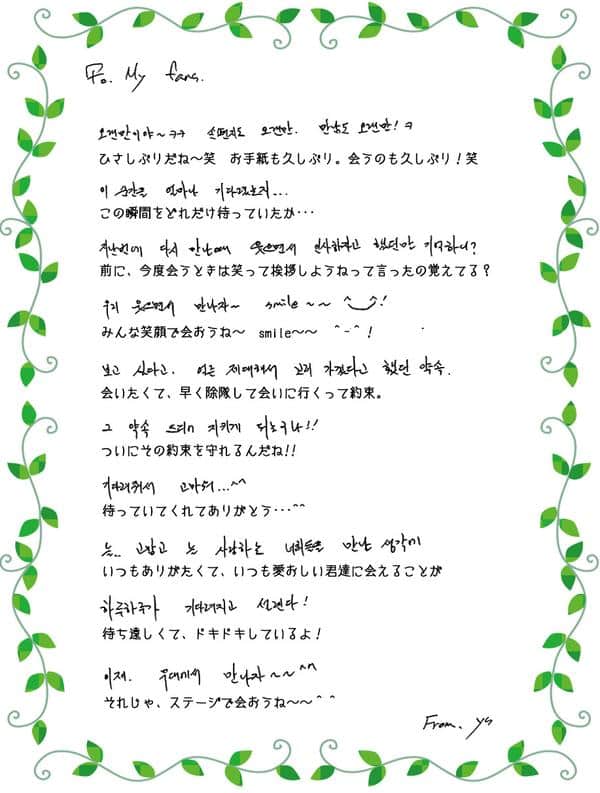 To. My fans.
오랜만이야~ㅋㅋ 손편지도 오랜만. 만남도 오랜만!ㅋ
ひさしぶりだね～笑　お手紙も久しぶり。会うのも久しぶり！笑
이 순간을 얼마나 기다렸는지...
この瞬間をどれだけ待っていたか・・・
지난번에 다시 만날때 웃으면서 인사하자고 했던말 기억하니?
前に、今度会うときは笑って挨拶しようねって言ったの覚えてる？
우리 웃으면서 만나자~ smile~~ ^‿^!
みんな笑顔で会おうね～ smile～～ ^-^！
보고 싶다고. 얼른 제대해서 보러 가겠다고 했던 약속.
会いたくて、早く除隊して会いに行くって約束。
그 약속 드디어 지키게 되는구나!!
ついにその約束を守れるんだね!!
기다려줘서 고마워...^^
待っていてくれてありがとう・・・^^
늘.. 고맙고 늘 사랑하는 너희들을 만날 생각에
いつもありがたくて、いつも愛おしい君達に会えることが
하루하루가 기다려지고 설렌다!
待ち遠しくて、ドキドキしているよ！
이제. 무대에서 만나자~~^^
それじゃ、ステージで会おうね～～^ ^
From. ys